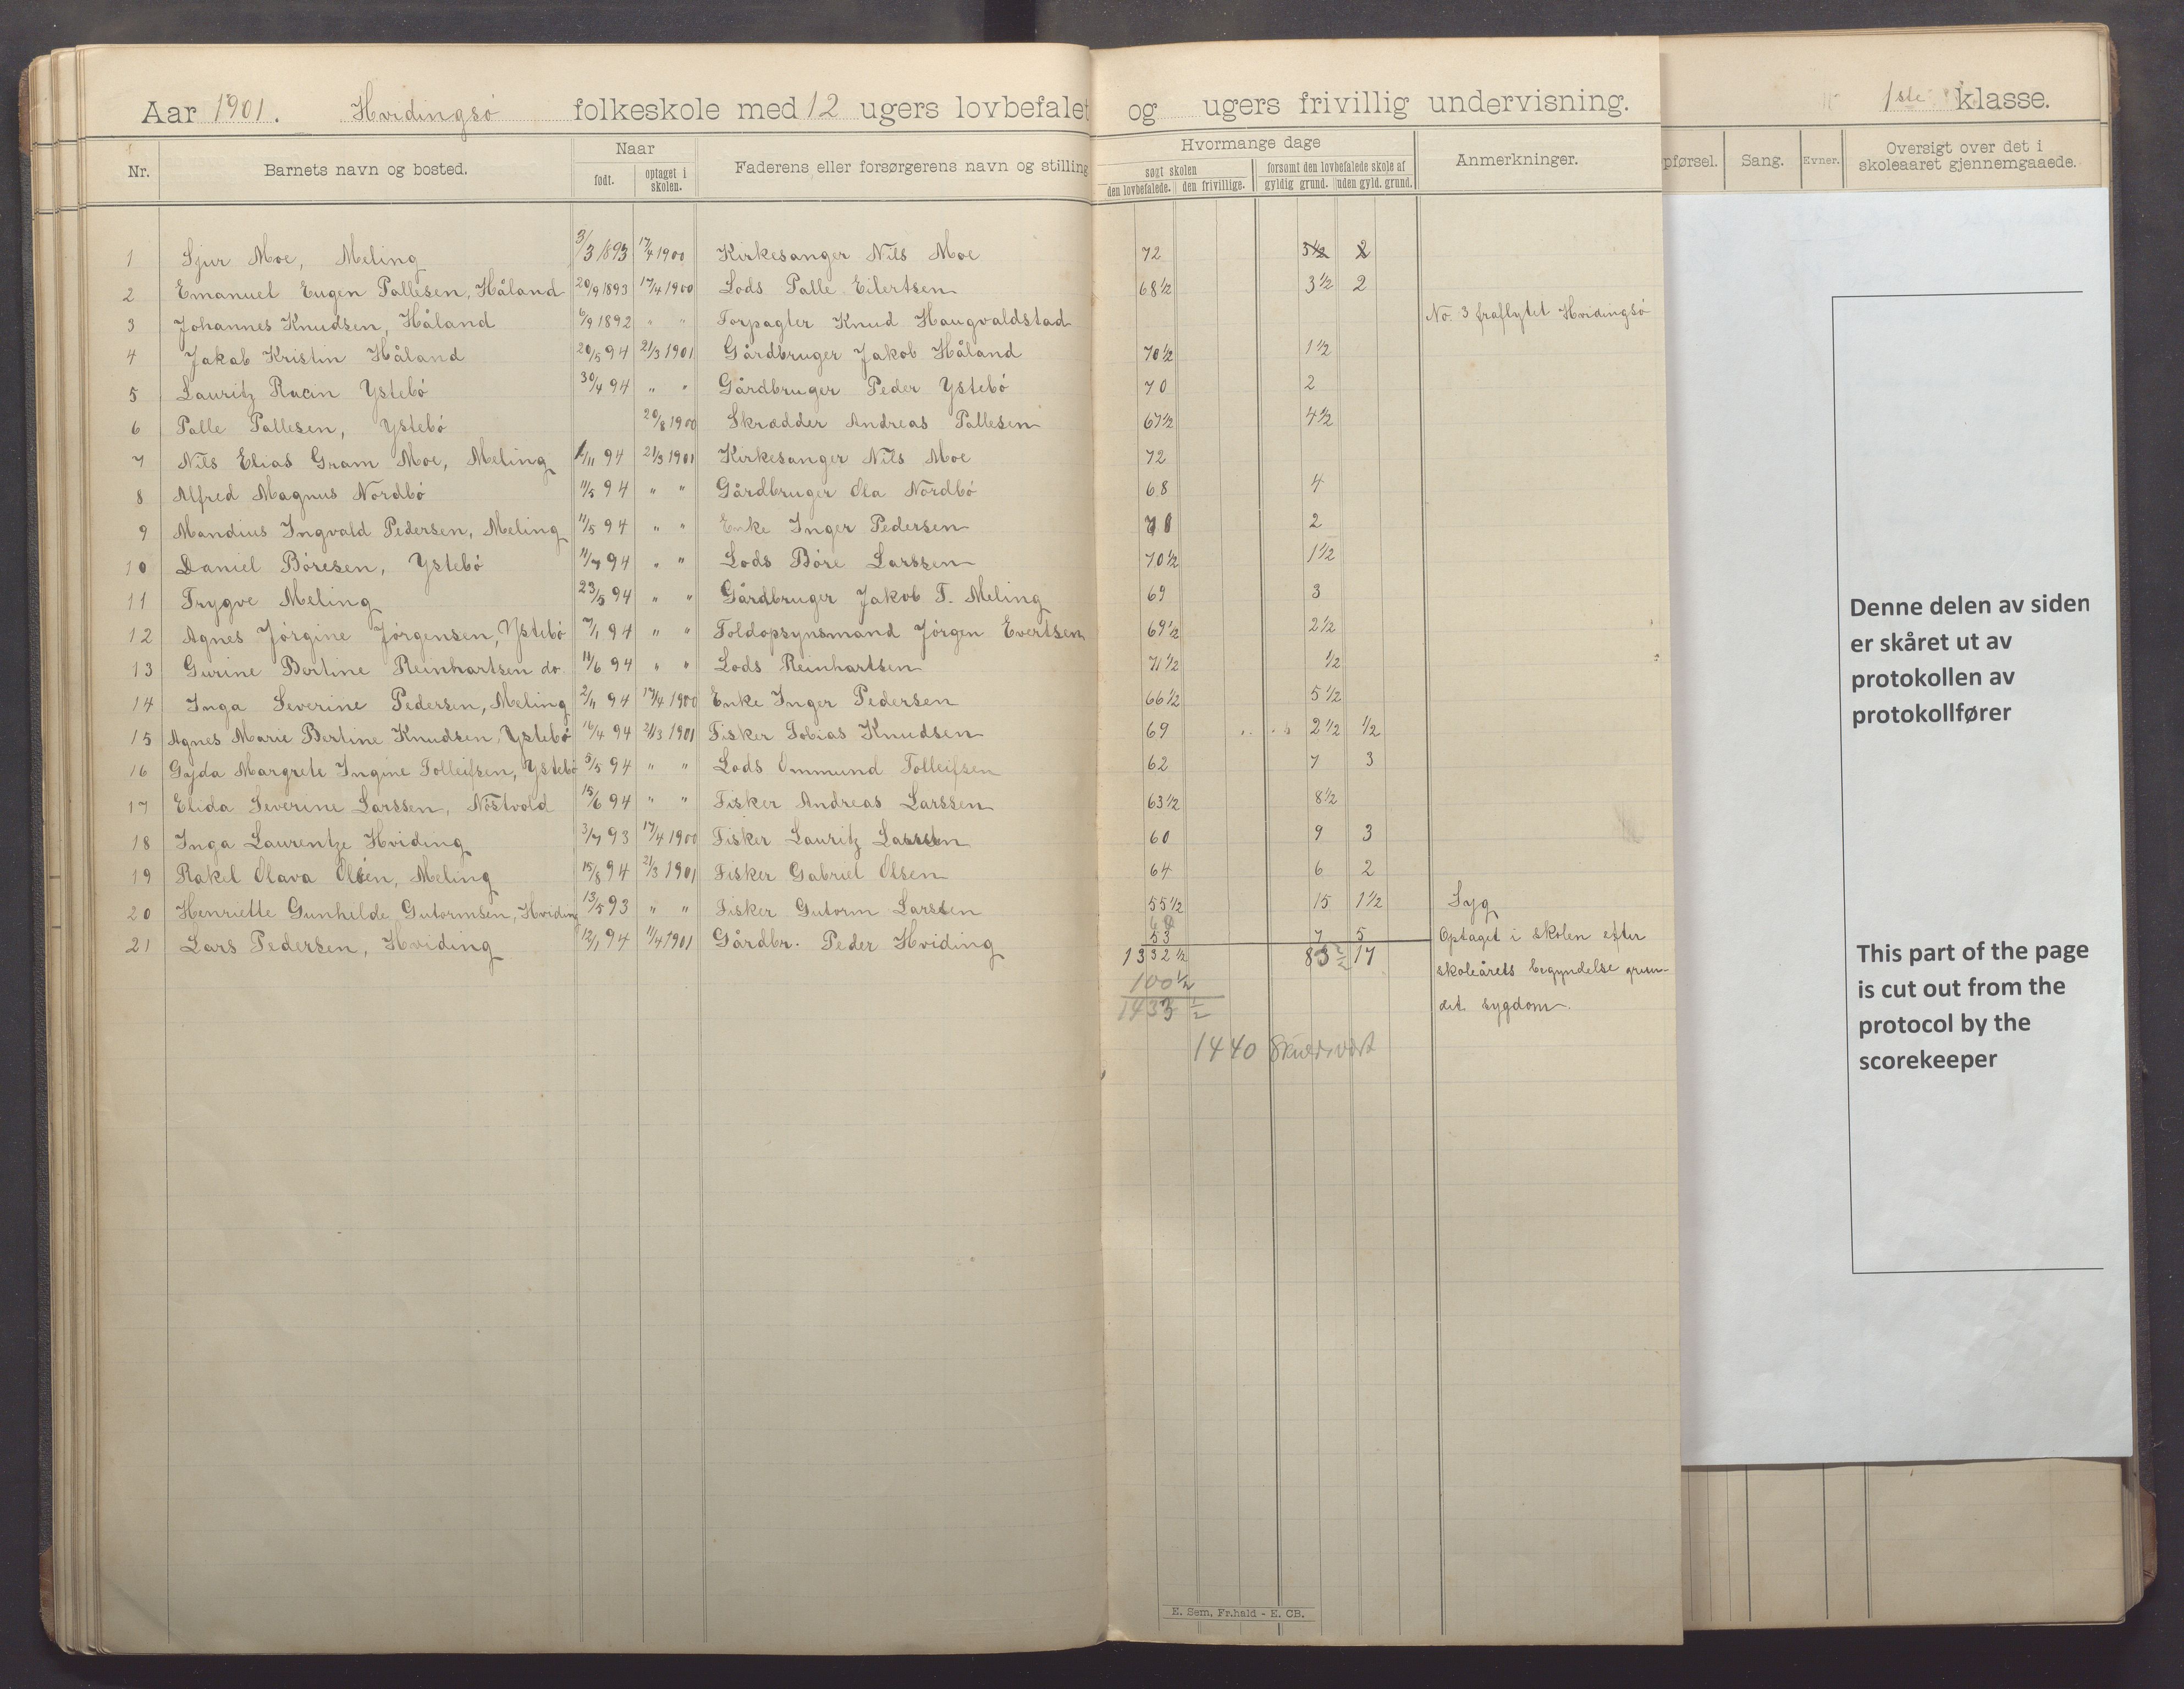 Aar 1901. Hvidingsö folkeskole med 12 ugers lovbefalet og ugers frivillig undervisning. 1ste klasse.
Nr. Barnets navn og bosted. Naar født. optaget i skolen. Faderens eller forsørgerens navn og stilling Hvormange dage søgt skolen den lovbefalede. den frivillige. forsømt den lovbefalede skole af gyldig grund. uden gyld. grund. Anmerkninger. pførsel. Sang. Evner. Oversigt over det i skoleaaret gjennemgaaede.
1 Sjur Moe, Meling 3/3 1893 17/4 1900 Kirkesanger Nils Moe 72 3 1/2 2
2 Emanuel Eugen Pallesen, Håland 20/9 1893 17/4 1900 Lods Palle Eilertsen 68 1/2 3 1/2 2
3 Johannes Knudsen, Håland 6/9 1892 " " Forpagter Knud Haugvaldstad No. 3 fraflytet Hvidingsö
4 Jakob Kristin Håland 20/5 94 21/3 1901 Gårdbruger Jakob Håland 70 1/2 1 1/2
5 Lauritz Racin Ystebö 30/4 94 " " Gårdbruger Peder Ystebö 70 2
6 Palle Pallesen, Ystebö 20/8 1900 Skrædder Andreas Pallesen 67 1/2 4 1/2
7 Nils Elias Gram Moe, Meling 1/11 94 21/3 1901 Kirkesanger Nils Moe 72
8 Alfred Magnus Nordbö 11/5 94 " " Gårdbruger Ola Nordbö 68 4
9 Mandius Ingvald Pedersen, Meling 11/5 94 " " Enke Inger Pedersen 70 2
10 Daniel Böresen, Ystebö 11/7 94 " " Lods Böre Larssen 70 1/2 1 1/2
11 Trygve Meling 23/5 94 " " Gårdbruger Jakob T. Meling 69 3
12 Agnes Jörgine Jörgensen, Ystebö 7/1 94 " " Toldopsynsmand Jörgen Evertsen 69 1/2 2 1/2
13 Gurine Bertine Reinhartsen do. 11/6 94 " " Lods Reinhartsen 71 1/2 1/2
14 Inga Severine Pedersen, Meling 2/11 94 17/4 1900 Enke Inger Pedersen 66 1/2 5 1/2
15 Agnes Marie Bertine Knudsen, Ystebö 16/4 94 21/3 1901 Fisker Tobias Knudsen 69 2 1/2 1/2
16 Gyda Margrete Ingine Tolleifsen, Ystebö 5/5 94 " " Lods Ommund Tolleifsen 62 7 3
17 Elida Severine Larssen, Nöstvold 15/6 94 " " Fisker Andreas Larssen 63 1/2 8 1/2
18 Inga Laurentze Hviding 3/7 93 17/4 1900 Fisker Lauritz Larssen 60 9 3
19 Rakel Olava Olsen, Meling 15/8 94 21/3 1901 Fisker Gabriel Olsen 64 6 2
20 Henriette Gunhilde Gutormsen, Hviding 13/5 93 " " Fisker Gutorm Larssen 55 1/2 15 1 1/2 Syg
21 Lars Pedersen, Hviding 12/1 94 11/4 1901 Gårdbr. Peder Hviding 53 7 5 Optaget i skolen efter
1332 1/2 83 1/2 17 skoleårets begyndelse grun-
100 1/2
1433 1/2 det sygdom.
1440
E. Sem, Fr.hald - E. CB.
Denne delen av siden
er skåret ut av
protokollen av
protokollfører
This part of the page
is cut out from the
protocol by the
scorekeeper